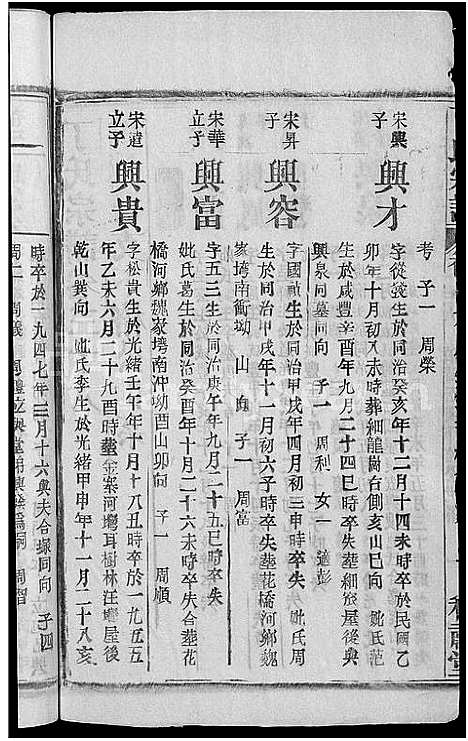 考 子一 周榮
宋興子 興才
字從籛生於同治癸亥年十二月十四未時卒於民國乙
卯年十月初八未時葬細龍崗右側亥山巳向 妣氏范
生於咸豐辛酉年九月二十四巳時卒失塟細
興泉同墓同向 子一 周利 女一 適彭
宋昇子 興容
字國 生於同治甲戌年四月初三申時卒失 妣氏周
生於同治甲戌年十一月初六子時卒失塟花橋河鄉魏
家塆南衝坳 山 向 子一 周富
宋華立子 興富
字五三生於同治庚午年 月二十五巳時卒失
妣氏葛生於同治癸酉年十月二十六未時卒失合塟花
橋河鄉魏家塆南沖坳酉山卯向 子一 周順
宋遠立子 興貴
字松貴生於光緒壬午年十月十八丑時卒於一九五五
年乙未六月二十九酉時塟金案河塆耳樹林汪 屋後
乾山巽向 妣氏李生於光緒甲申年十一月二十八亥
時卒於一九四七年三月十六與夫合塚同向 子四
周仁 周義 周禮立興 周智